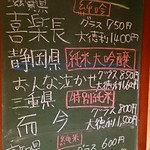 滋賀県 純吟
喜楽長 グラス750円
大徳利1400円
静岡県 純米大吟醸
おんな泣かせ グラス850円
大徳利
三重県 特別純米
而今 グラス800円
大徳利
純米
グラス600円